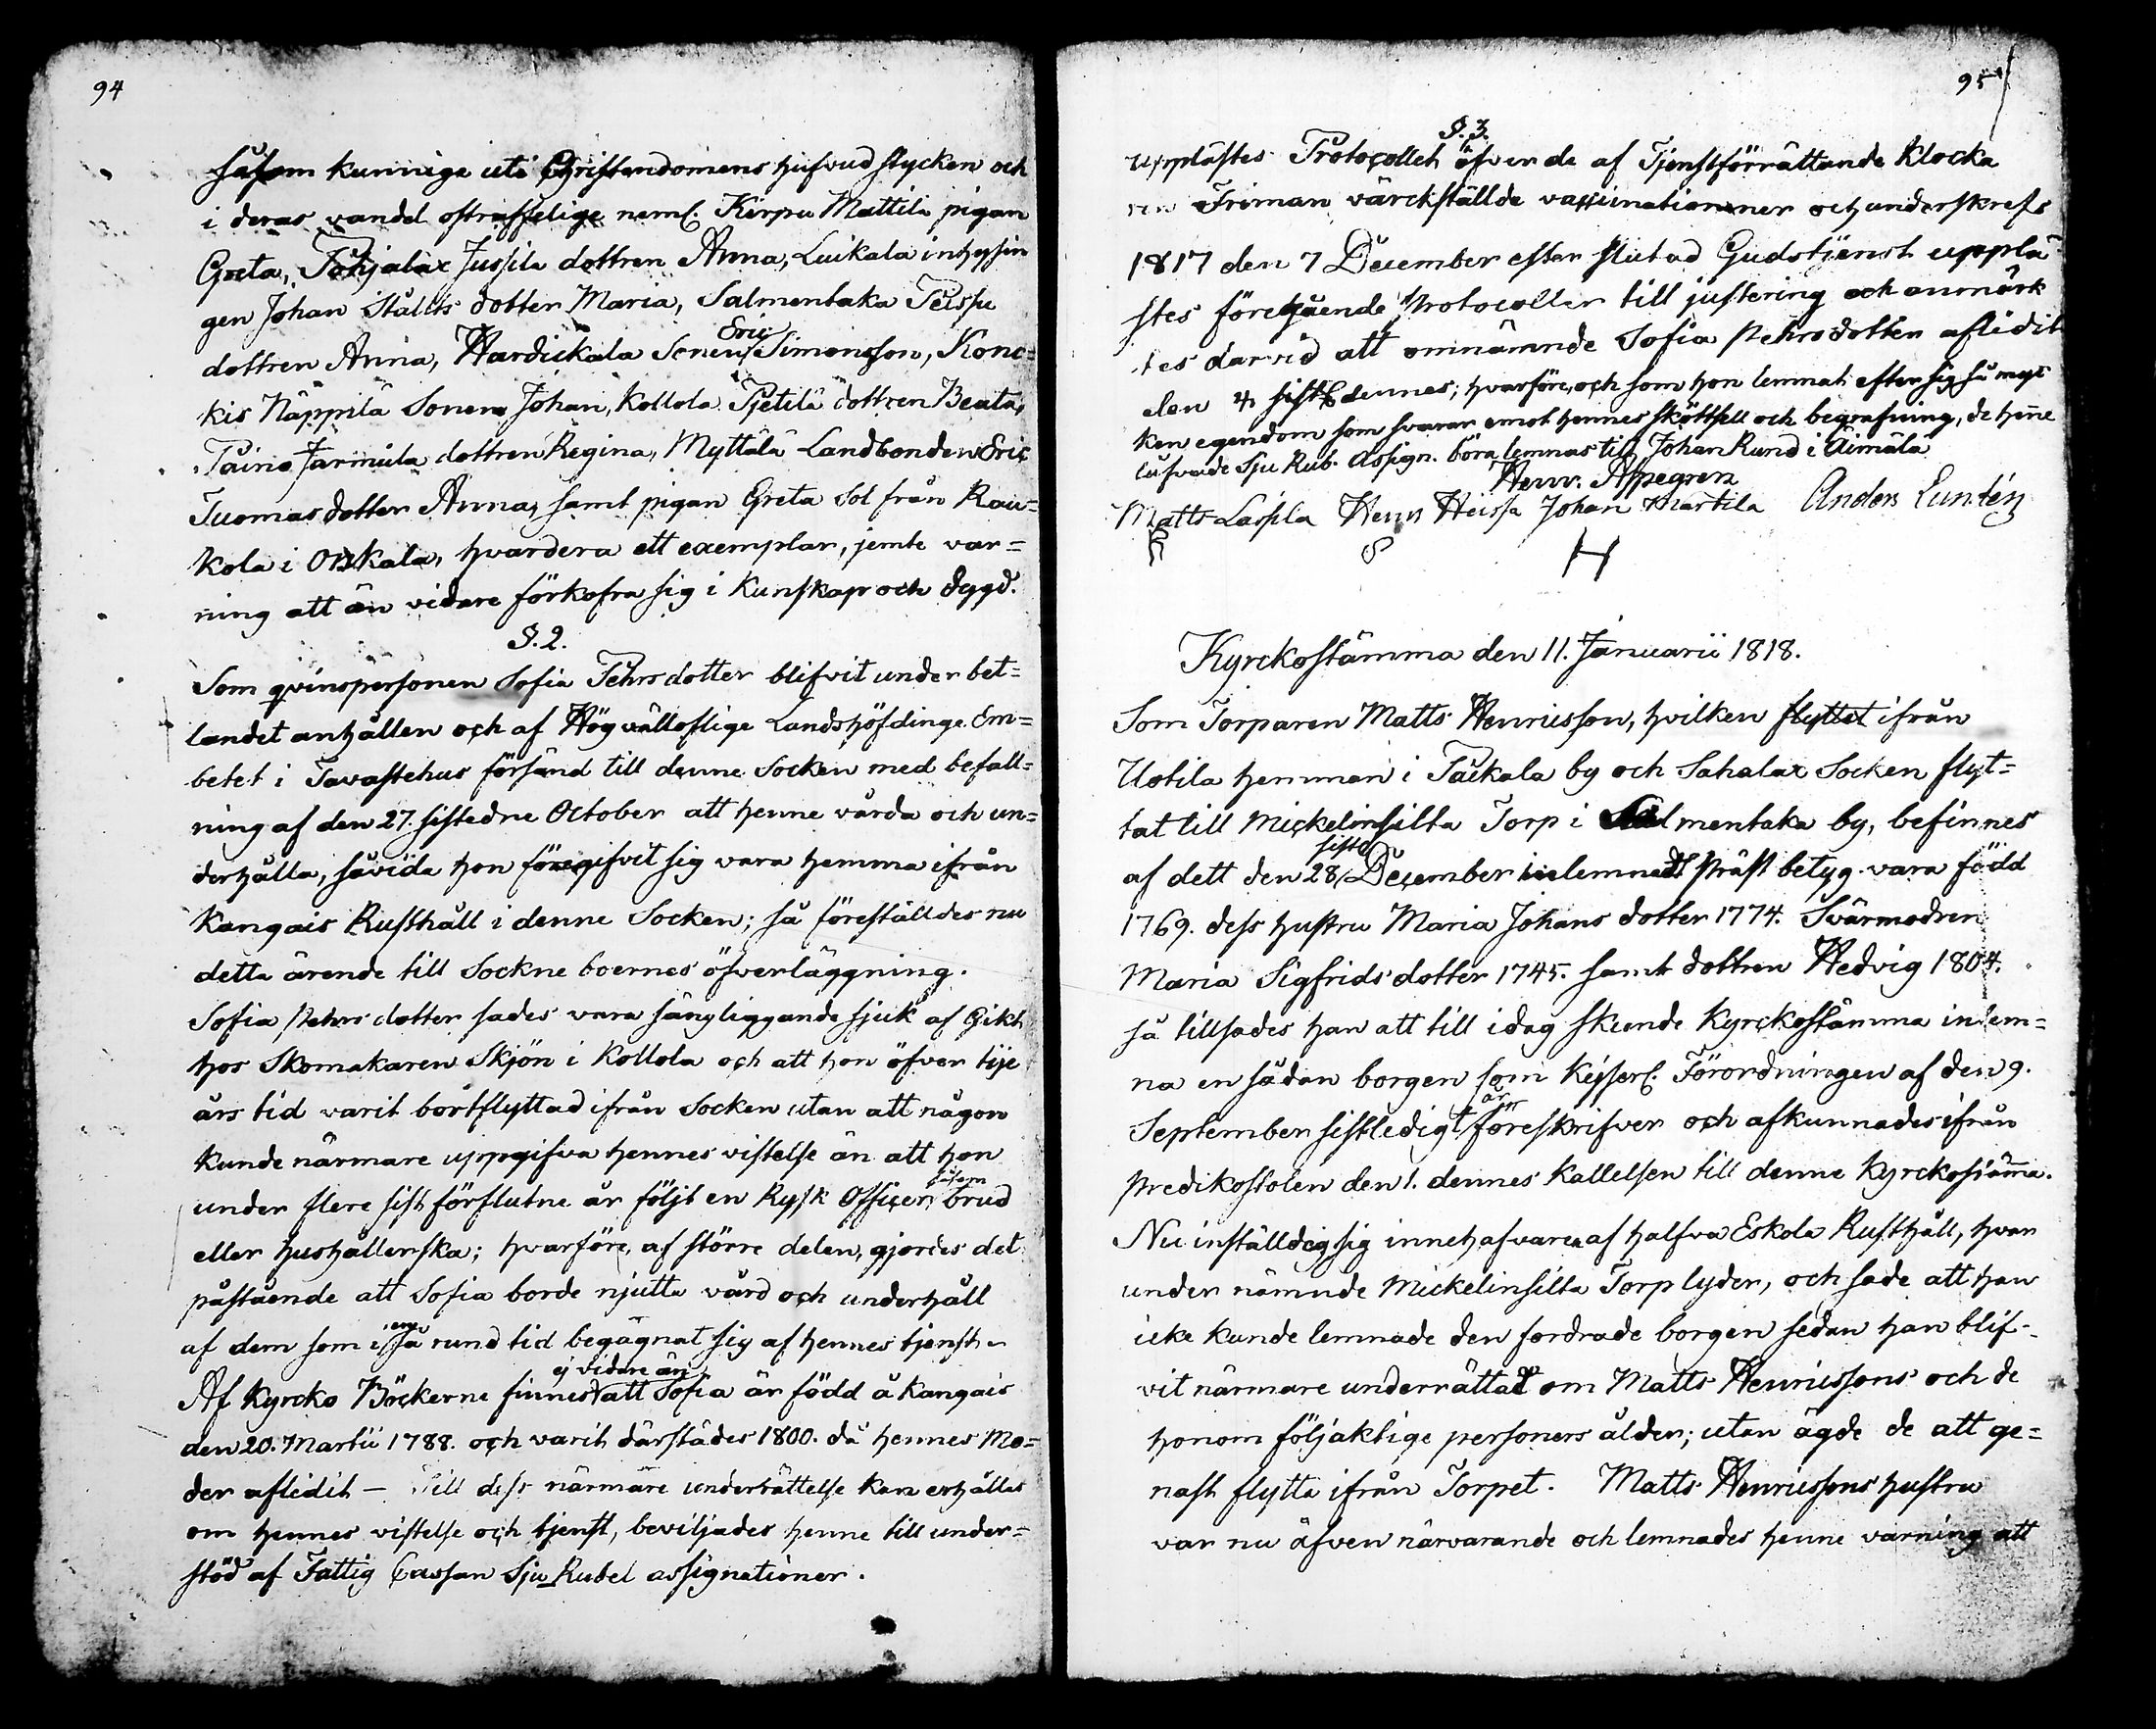 94
såsom kunnige uti Christendomens hufvud stycken och
i deras vandel ostraffelige neml. Kirpu Mattila pigan
Greta, Pohjalax Jussila dottren Anna, Luikala inhysin
gen Johan Ställts dotter Maria, Salmentaka Teissu
dottren Anna, Hardickala Sonen Eric Simonsson, Kono=
kis Näppilä Sonen Johan, Kollola Pjetilä dottren Beata,
Paino Jarmula dottren Regina, Myttälä Landbonden Eric
Tuomas dotter Anna, samt pigan Greta Sol från Rau=
kola i Onkala, hvardera ett exemplar, jemte var=
ning att än vidare förkofra sig i Kunskap och dygd.
§. 2.
Som qvinspersonen Sofia Pehrsdotter blifvit under bet=
landet anhållen och af Högvälloflige Landshöfdinge Em=
betet i Tavastehus försänd till denne Socken med befall=
ning af den 27. sistledne October att henne vårda och un=
derhålla, såvida hon föregifvit sig vara hemma ifrån
Kangais Rusthåll i denne Socken; så föreställdes nu
detta ärende till Sockne boernes öfverläggning.
Sofia Pehrs dotter sades vara sängliggande sjuk af Gikt
hos Skomakaren Skjön i Kollola och att hon öfver tije
års tid varit bortflyttad ifrån Socken utan att någon
kunde närmare uppgifva hennes vistelse än att hon
under flere sist förflutne år följt en Rysk Officer såsom brud
eller hushållerska; hvarföre, af större delen, gjordes det
påstående att Sofia borde njutta vård och underhåll
af dem som i en så rund tid begagnat sig af hennes tjenst.
Af Kyrcko Böckerne finnes ej vidare än att Sofia är född å Kangais
den 20. Martii 1788. och varit därstädes 1800. då hennes Mo=
der aflidit — Till dess närmare underrättelse kan erhålles
om hennes vistelse och tjenst, beviljades henne till under=
stöd af Fattig Cassan Sju Rubel assignationer.
95
§. 3.
upplästes Protocollet öfver de af Tjenstförrättande Klocka
ren Friman värckställde vaccinationer och underskrefs
1817 den 7 December efter slutad Gudstjenst upplä
stes föregående Protocoller till justering och anmärk
tes darvid att omnämnde Sofia Pehrsdotter aflidit
den 4 sistl. dennes; hvarföre, och som hon lemnat efter sig så myc
ken egendom som svarar emot hennes skötsell och begrafning, de henne
lufvade Sju Rub. Assign. böra lemnas till Johan Rund i Äimälä
Henr. Appegren
Matts Lassila Henr Heissa Johan Martila Anders Luntén
Kyrckostämma den 11. Januarii 1818.
Som Torparen Matts Henricsson, hvilken flyttet ifrån
Uotila hemman i Taikala by och Sahalax Socken flyt=
tat till Mickelinsilta Torp i Salmentaka by, befinnes
af dett den 28 sistl December inlemnadt präst betyg vara född
1769. dess hustru Maria Johans dotter 1774. Svärmodren
Maria Sigfridsdotter 1745. samt dottren Hedvig 1804.
så tillsades han att till idag skeende Kyrckostämma inlem=
na en sådan borgen som Kejserl. Förordningen af den 9.
September sistledigt år föreskrifver och afkunnades ifrån
predikostolen den 1. dennes Kallelsen till denne Kyrckostämma.
Nu inställdes sig innehafvaren af halfva Eskola Rusthåll, hvar
under nämnde Mickelinsilta Torp lyder, och sade att han
icke kunde lemnade den fordrade borgen sedan han blif=
vit närmare underrättat om Matts Henricssons och de
honom följaktige personers ålder; utan ägde de att ge=
nast flytta ifrån Torpet. Matts Henricssons hustru
var nu äfven närvarande och lemnades henne varning att